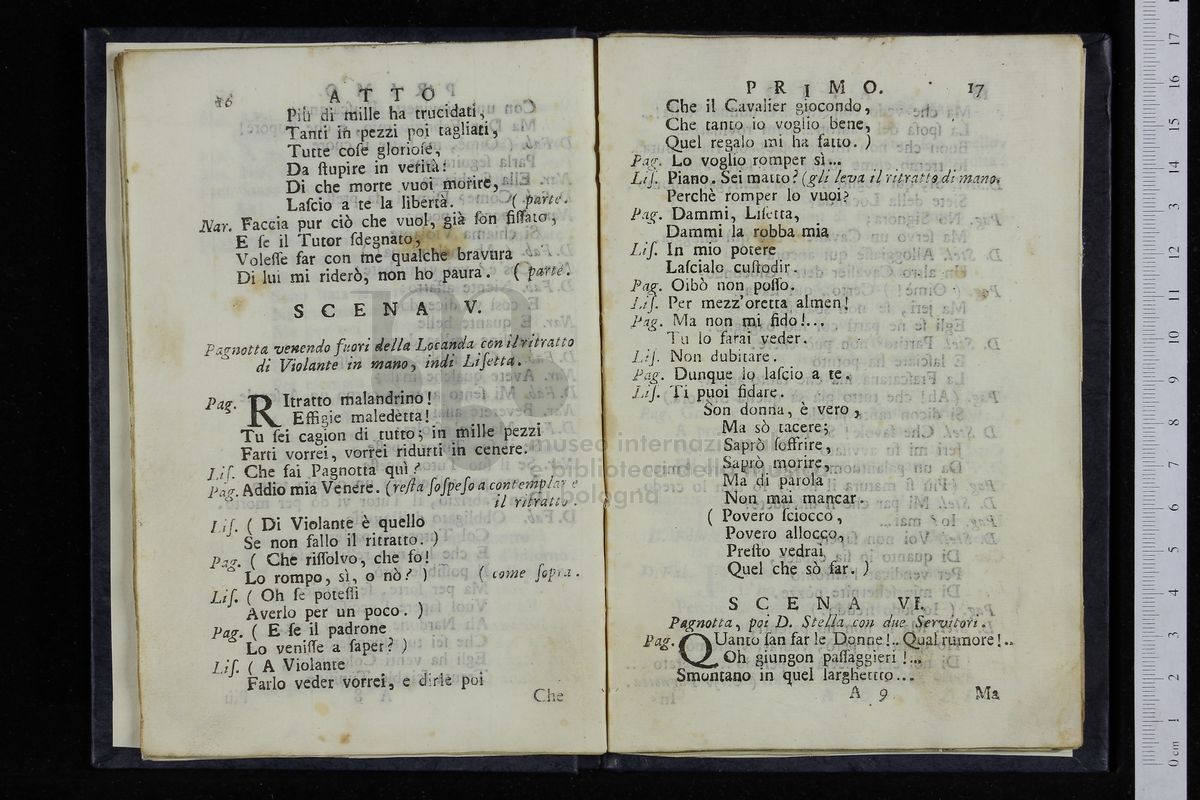 16 ATTO
Più di mille ha trucidati,
Tanti in pezzi poi tagliati,
Tutte coſe glorioſe,
Da ſtupire in verità:
Di che morte vuoi morire,
Laſcio a te la libertà. ( parte.
Nar. Faccia pur ciò che vuol, già ſon fiſſato,
E ſe il Tutor ſdegnato,
Voleſſe far con me qualche bravura
Di lui mi riderò, non ho paura. ( parte.
SCENA V.
Pagnotta venendo fuori della Locanda con il ritratto
di Violante in mano, indi Liſetta.
Pag. RItratto malandrino!
Effigie maledetta!
Tu ſei cagion di tutto; in mille pezzi
Farti vorrei, vorrei ridurti in cenere.
Liſ. Che fai Pagnotta quì?
Pag. Addio mia Venere. (reſta ſoſpeſo a contemplar e
il ritratto.
Liſ. ( Di Violante è quello
Se non fallo il ritratto. )
Pag. ( Che riſſolvo, che fo!
Lo rompo, sì, o nò? ) ( come ſopra.
Liſ. ( Oh ſe poteſſi
Averlo per un poco. )
Pag. ( E ſe il padrone
Lo veniſſe a ſaper? )
Liſ. ( A Violante
Farlo veder vorrei, e dirle poi
Che
PRIMO. 17
Che il Cavalier giocondo,
Che tanto io voglio bene,
Quel regalo mi ha fatto. )
Pag. Lo voglio romper sì...
Liſ. Piano. Sei matto? (gli leva il ritratto di mano.
Perchè romper lo vuoi?
Pag. Dammi, Liſetta,
Dammi la robba mia
Liſ. In mio potere
Laſcialo cuſtodir.
Pag. Oibò non poſſo.
Liſ. Per mezz'oretta almen!
Pag. Ma non mi fido!...
Tu lo farai veder.
Liſ. Non dubitare.
Pag. Dunque lo laſcio a te.
Liſ. Ti puoi fidare.
Son donna, è vero,
Ma sò tacere;
Saprò ſoffrire,
Saprò morire,
Ma di parola
Non mai mancar.
( Povero ſciocco,
Povero allocco,
Preſto vedrai
Quel che sò far. )
SCENA VI.
Pagnotta, poi D. Stella con due Servitori.
Pag. QUanto ſan far le Donne!.. Qual rumore!..
Oh giungon paſſaggieri!...
Smontano in quel larghettto...
A 9 Ma
museo internazi
e biblioteca della musica
di bologna
0 cm 1 2 3 4 5 6 7 8 9 10 11 12 13 14 15 16 17